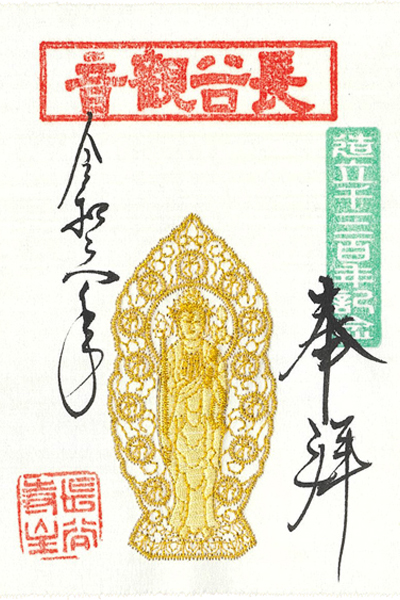 長谷觀音
造立千三百年記念
奉拝
令和 年
長谷寺